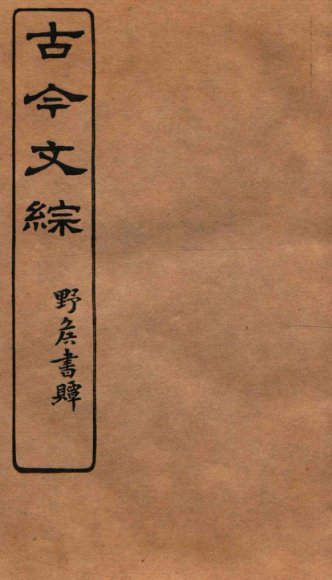 古今文綜
野矦書贉